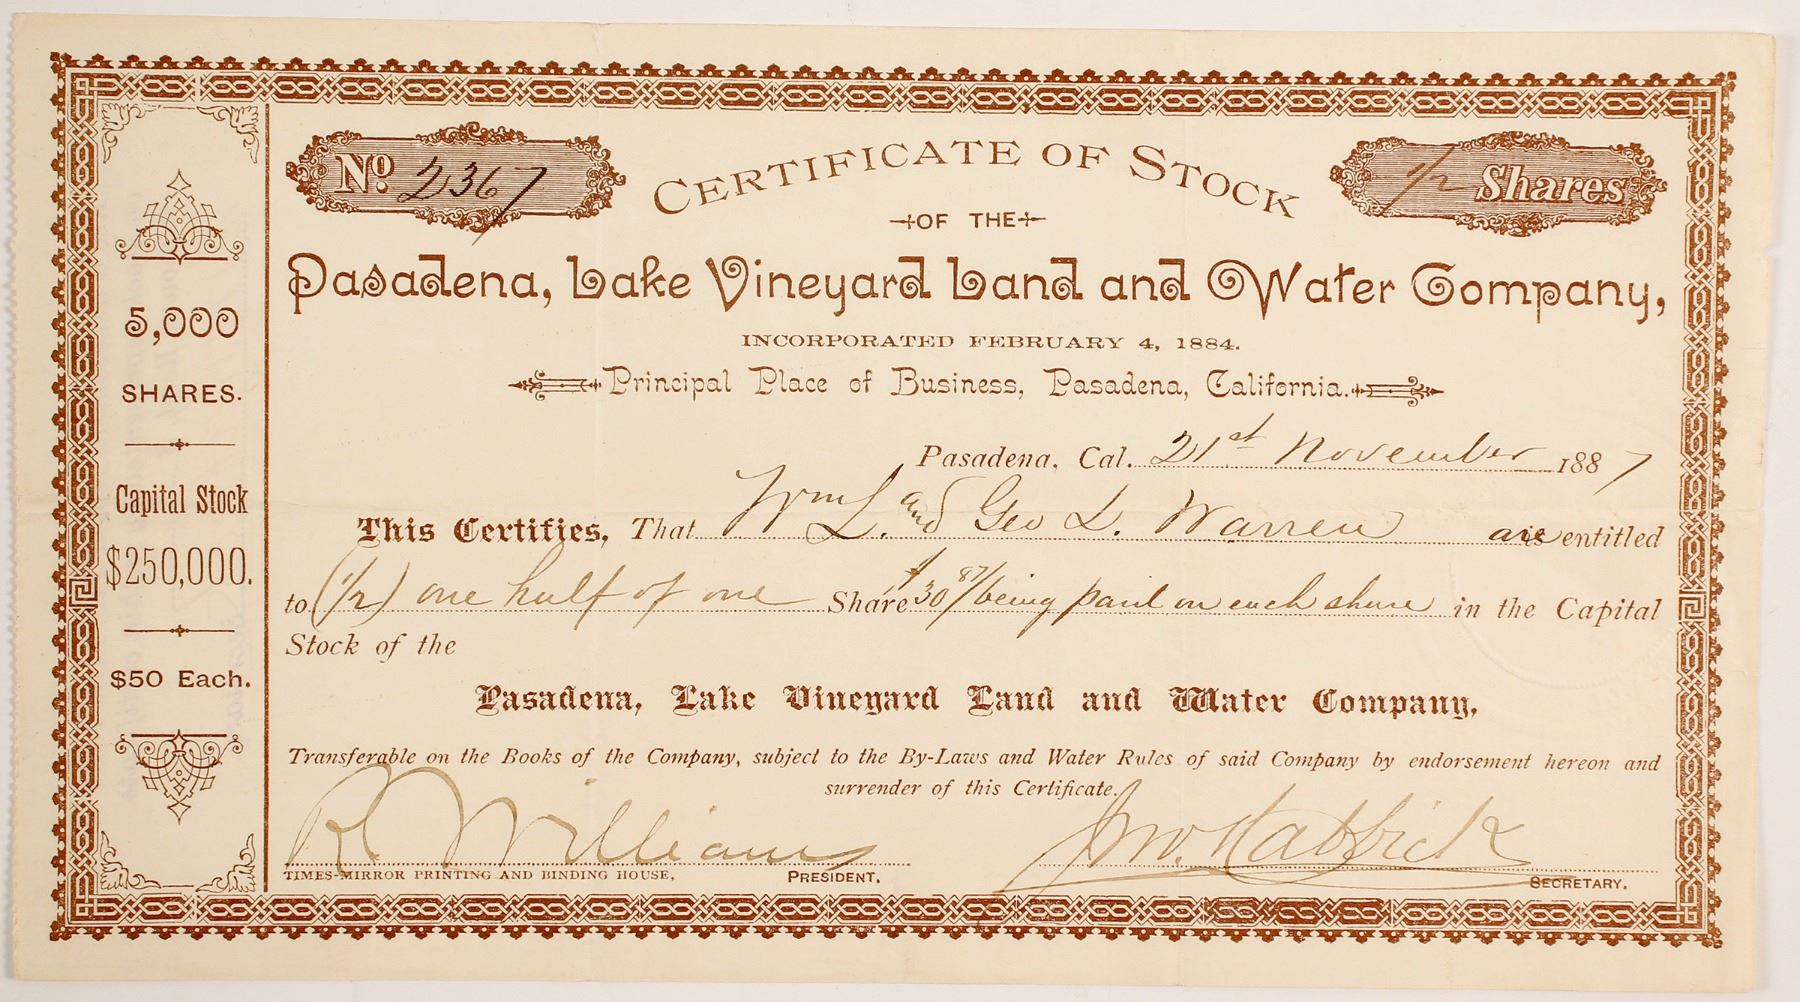 No. 2367
CERTIFICATE OF STOCK
1/2 Shares
OF THE
Pasadena, Lake Vineyard Land and Water Company,
INCORPORATED FEBRUARY 4, 1884.
Principal Place of Business, Pasadena, California.
5,000
SHARES.
Capital Stock
$250,000.
$50 Each.
Pasadena, Cal. 21st November 1887
This Certifies, That Wm L. and Geo L. Warren are entitled
to (1/2) one half of one Share $30 87/ being paid on each share in the Capital
Stock of the
Pasadena, Lake Vineyard Land and Water Company,
Transferable on the Books of the Company, subject to the By-Laws and Water Rules of said Company by endorsement hereon and
surrender of this Certificate.
R Williams
TIMES-MIRROR PRINTING AND BINDING HOUSE, PRESIDENT.
Jno.
SECRETARY.